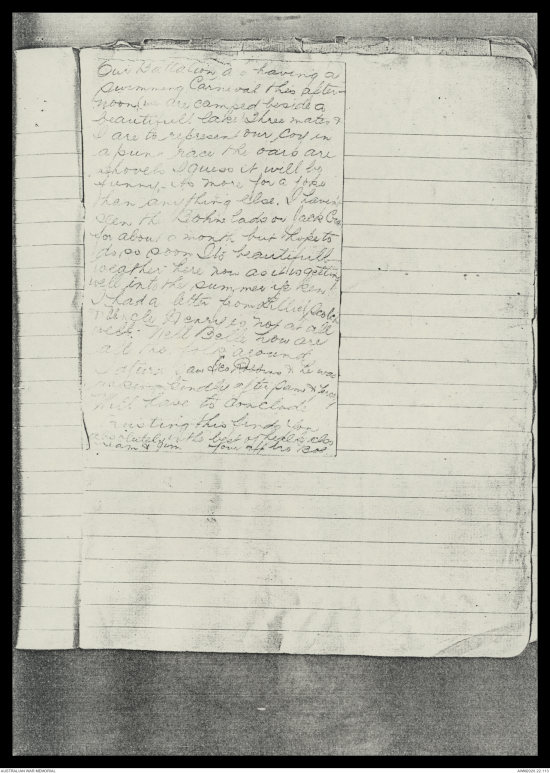 Our Battalion are having a
swimming Carnival this after-
noon, we are camped beside a
beautifull lake. Three mates &
I are to represent our Coy in
a punt race the oars are
shovels I guess it will be
funny. its more for a joke
than anything else. I haven
seen the lads or Jack
for about a month but hope to
do so soon. Its beautifull
weather here now as it is getting
well into the summer ye ken!
I had a letter from
Uncle Henry is not at all
well. Well Belle how are
all the folk around
I often & he was
after Sam &
Will have to conclude
trusting this finds you
absolutely in the best of health also
Sam & Jim. Your aff bro Bob
AUSTRALIAN WAR MEMORIAL